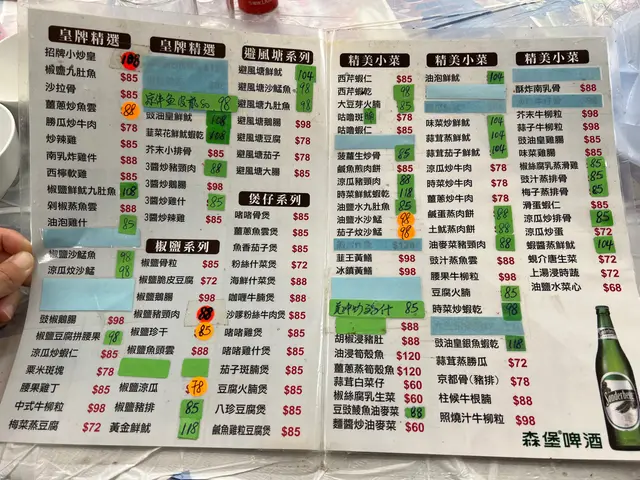 皇牌精選
招牌小炒皇 108
椒鹽九肚魚 $85
沙拉骨 $85
薑蔥炒魚雲 88
勝瓜炒牛肉 $78
炒辣雞 $85
南乳炸雞件 $88
西檸軟雞 $85
椒鹽鮮魷九肚魚 108
剁椒蒸魚雲 $88
油泡雞什 85
椒鹽沙鯭魚 98
涼瓜炆沙鯭 98
豉椒鵝腸 $98
椒鹽豆腐拼腰果 98
涼瓜炒蝦仁 $85
粟米斑塊 $78
腰果雞丁 $85
中式牛柳粒 $98
梅菜蒸豆腐 $72
皇牌精選
98
豉油皇鮮魷 108
韮菜花鮮魷蝦乾 108
芥末小排骨 $85
3醬炒豬頸肉 88
3醬炒鵝腸 $98
3醬炒雞什 85
3醬炒辣雞 $85
椒鹽系列
椒鹽骨粒 $85
椒鹽脆皮豆腐 $72
椒鹽鵝腸 $98
椒鹽豬頸肉 88
椒鹽珍干 85
椒鹽魚頭雲 $88
椒鹽涼瓜 $78
椒鹽豬排 85
黃金鮮魷 118
避風塘系列
避風塘鮮魷 104
避風塘沙鯭魚 98
避風塘九肚魚 98
避風塘鵝腸 $98
避風塘豆腐 $78
避風塘茄子 $78
避風塘大腸 $85
煲仔系列
啫啫骨煲 $85
薑蔥魚雲煲 $85
魚香茄子煲 $85
粉絲什菜煲 $72
海鮮什菜煲 $88
咖喱牛腩煲 $88
沙嗲粉絲牛肉煲 $85
啫啫雞煲 $85
啫啫雞什煲 $85
茄子斑腩煲 $85
豆腐火腩煲 $85
八珍豆腐煲 $85
鹹魚雞粒豆腐煲 $85
精美小菜
西芹蝦仁 $85
西芹蝦乾 98
大豆芽火腩 85
咕嚕斑 84
咕嚕蝦 $85
菠蘿生炒骨 85
鹹魚煎肉餅 $85
涼瓜豬頸肉 88
油鹽水九肚魚 118
油鹽水沙鯭 98
茄子炆沙鯭 98
韭王黃鱔 $98
冰鎮黃鱔 $98
85
$88
胡椒浸豬肚 $88
油浸筍殼魚 $120
薑蔥蒸筍殼魚 $120
蒜茸白菜仔 $60
椒絲腐乳生菜 $60
豆豉鯪魚油麥菜 88
麵醬炒油麥菜 $60
精美小菜
油泡鮮魷 104
味菜炒鮮魷 104
蒜茸蒸鮮魷 104
蒜茸茄子鮮魷 104
涼瓜炒牛肉 $78
時菜炒牛肉 $78
薑蔥炒牛肉 $78
鹹蛋蒸肉餅 88
土魷蒸肉餅 88
油麥菜豬頸肉 88
豉汁蒸魚雲 $88
腰果牛柳粒 $98
豆腐火腩 85
時菜炒蝦乾 98
豉油皇銀魚蝦乾 118
蒜茸蒸勝瓜 $72
京都骨(豬排) $78
柱候牛根腩 $88
照燒汁牛柳粒 $98
精美小菜
酥炸南乳骨 $88
芥末牛柳粒 $98
蒜子牛柳粒 $98
豉油皇雞腳 $85
味菜雞腸 $85
椒絲腐乳蒸滑雞 85
豉汁蒸排骨 85
梅子蒸排骨 85
滑蛋蝦仁 $85
涼瓜炒排骨 85
涼瓜炒蛋 $72
蝦醬蒸鮮魷 104
蜆介唐生菜 $72
上湯浸時蔬 $72
油鹽水菜心 $68
森堡啤酒